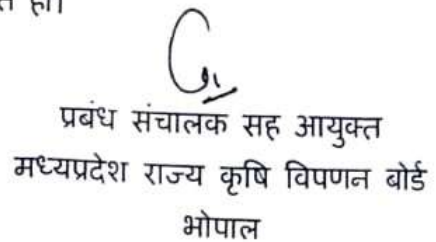 हो।
प्रबंध संचालक सह आयुक्त
मध्यप्रदेश राज्य कृषि विपणन बोर्ड
भोपाल